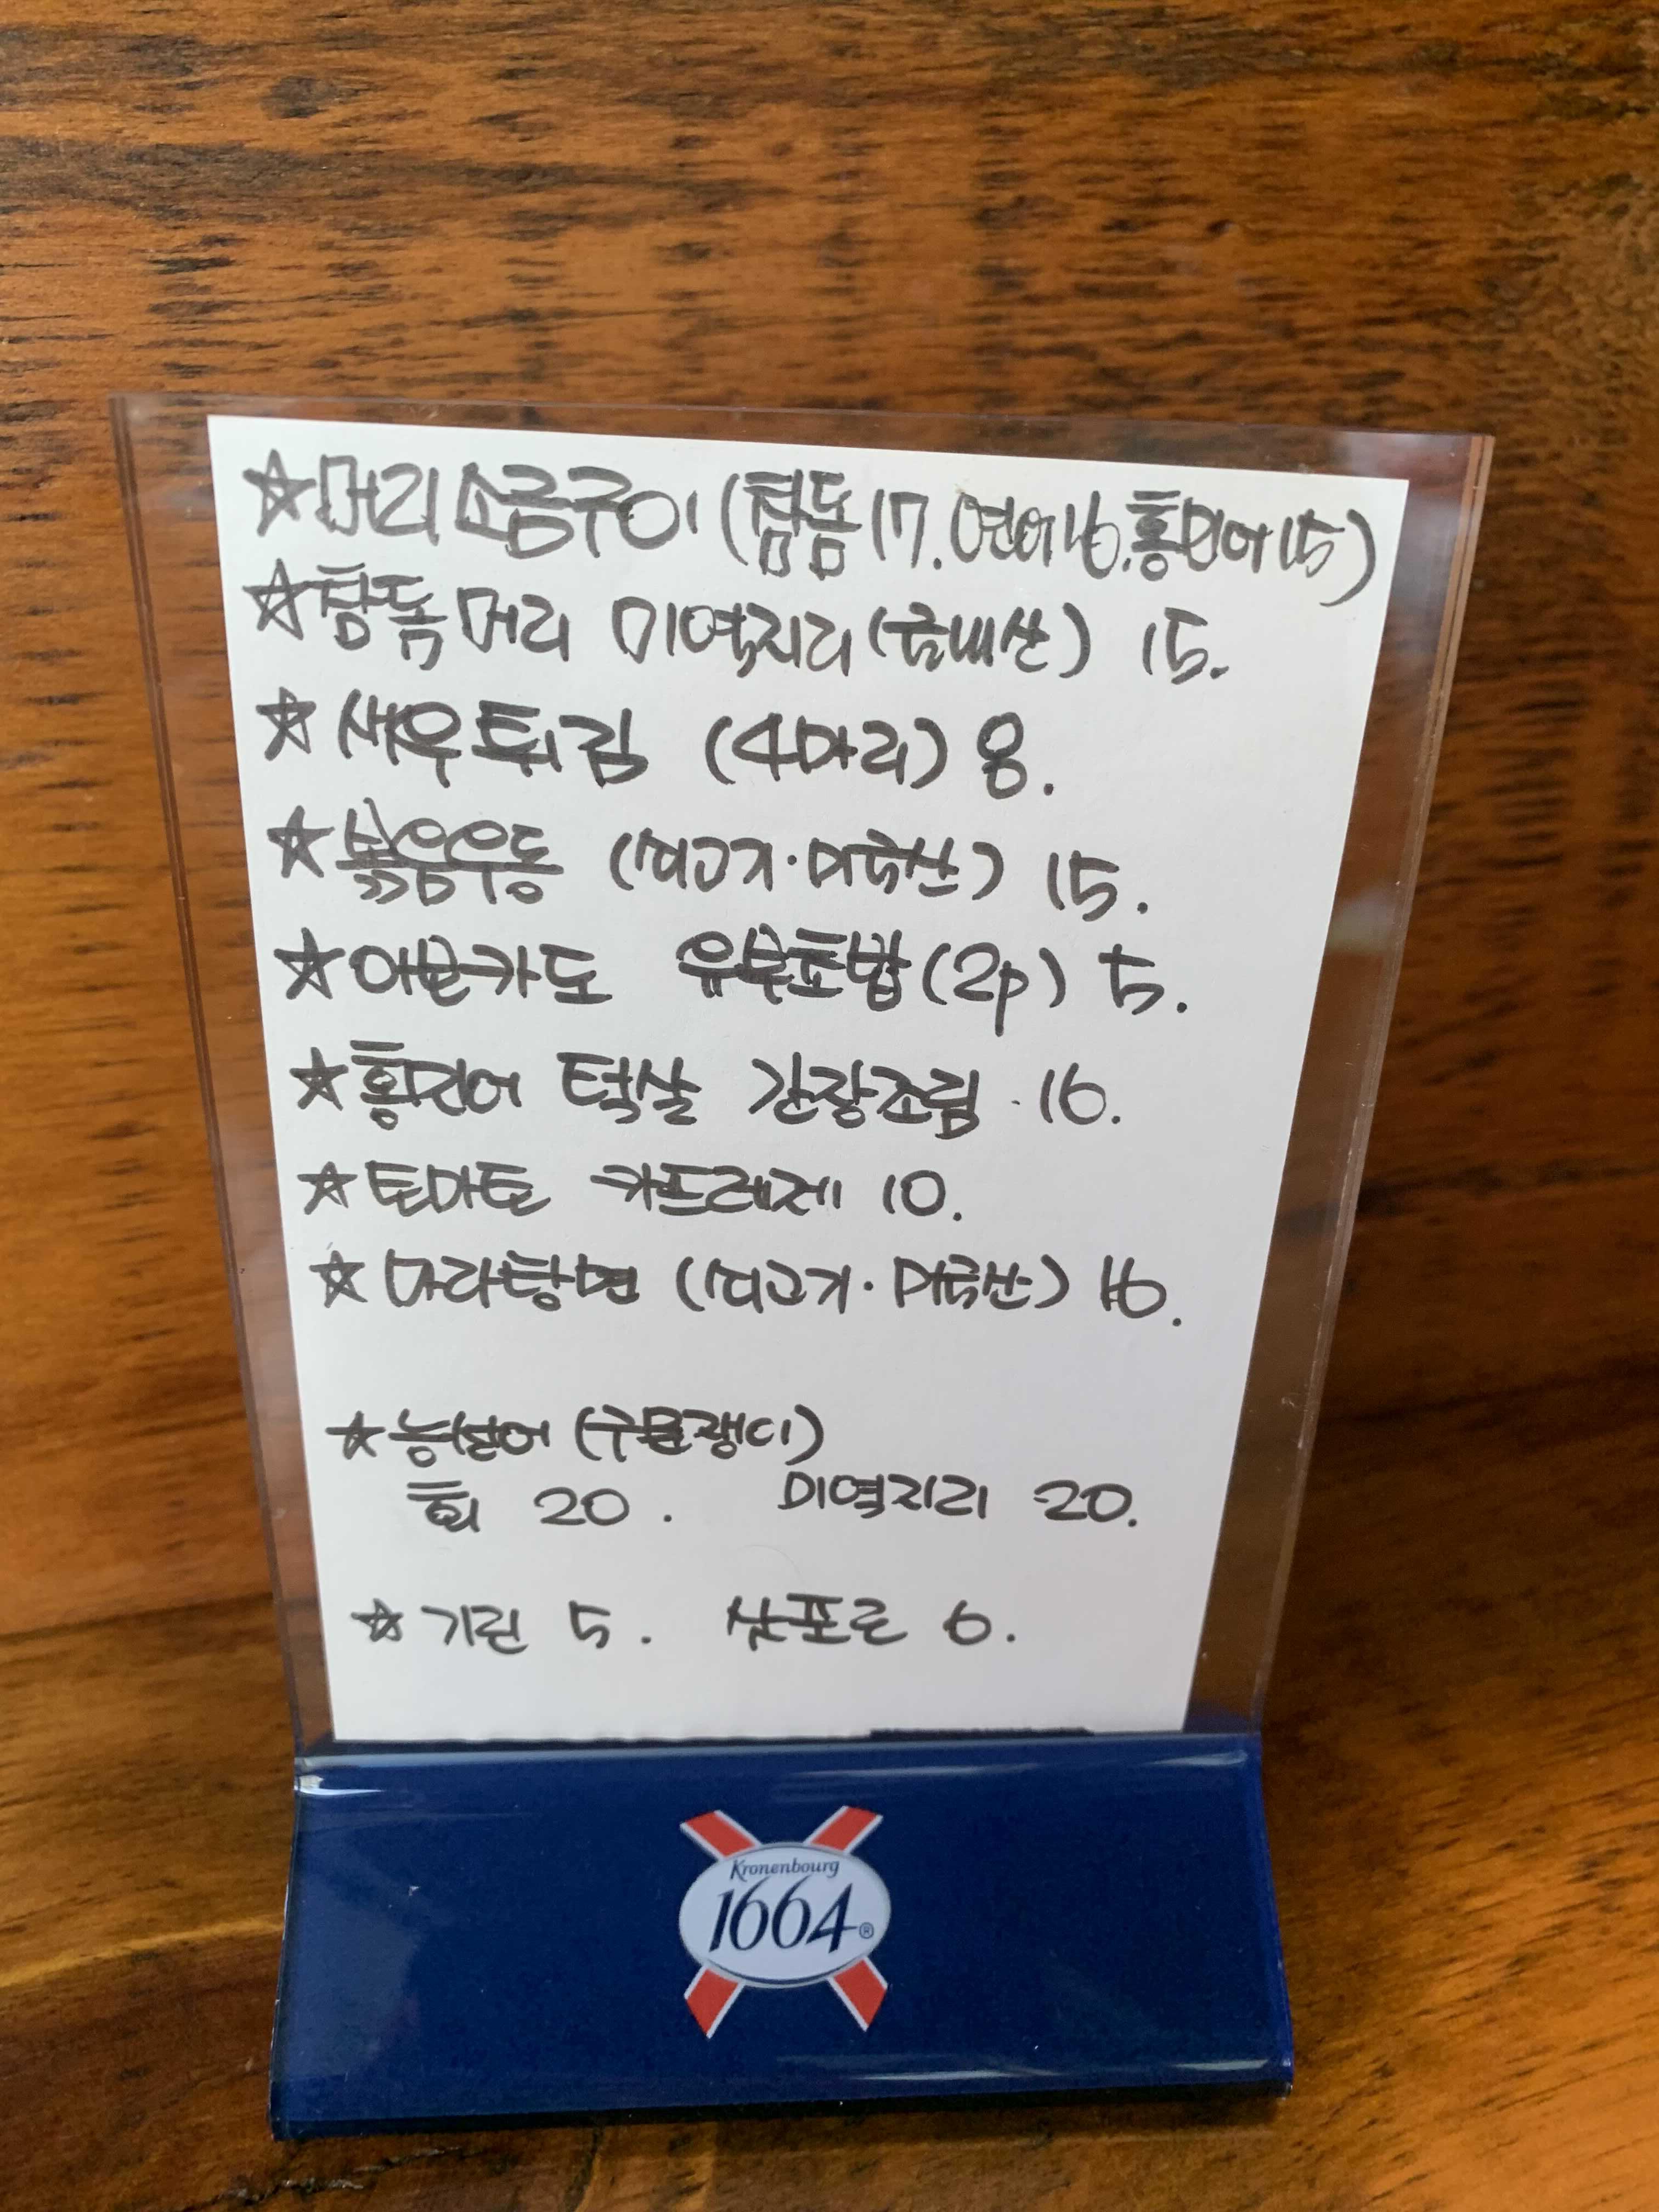 ☆머리 소금구이 (참돔 17. 연어 16. 홍민어 15)
☆참돔 머리 미역지리 (국내산) 15.
☆새우튀김 (4마리) 8.
☆볶음우동 (쇠고기·미국산) 15.
☆아보카도 유부초밥 (2p) 5.
☆홍민어 턱살 간장조림 16.
☆토마토 카프레제 10.
☆마라탕면 (쇠고기·미국산) 16.
☆능성어 (구문쟁이)
회 20. 미역지리 20.
☆기린 5. 삿포로 6.
Kronenbourg
1664®